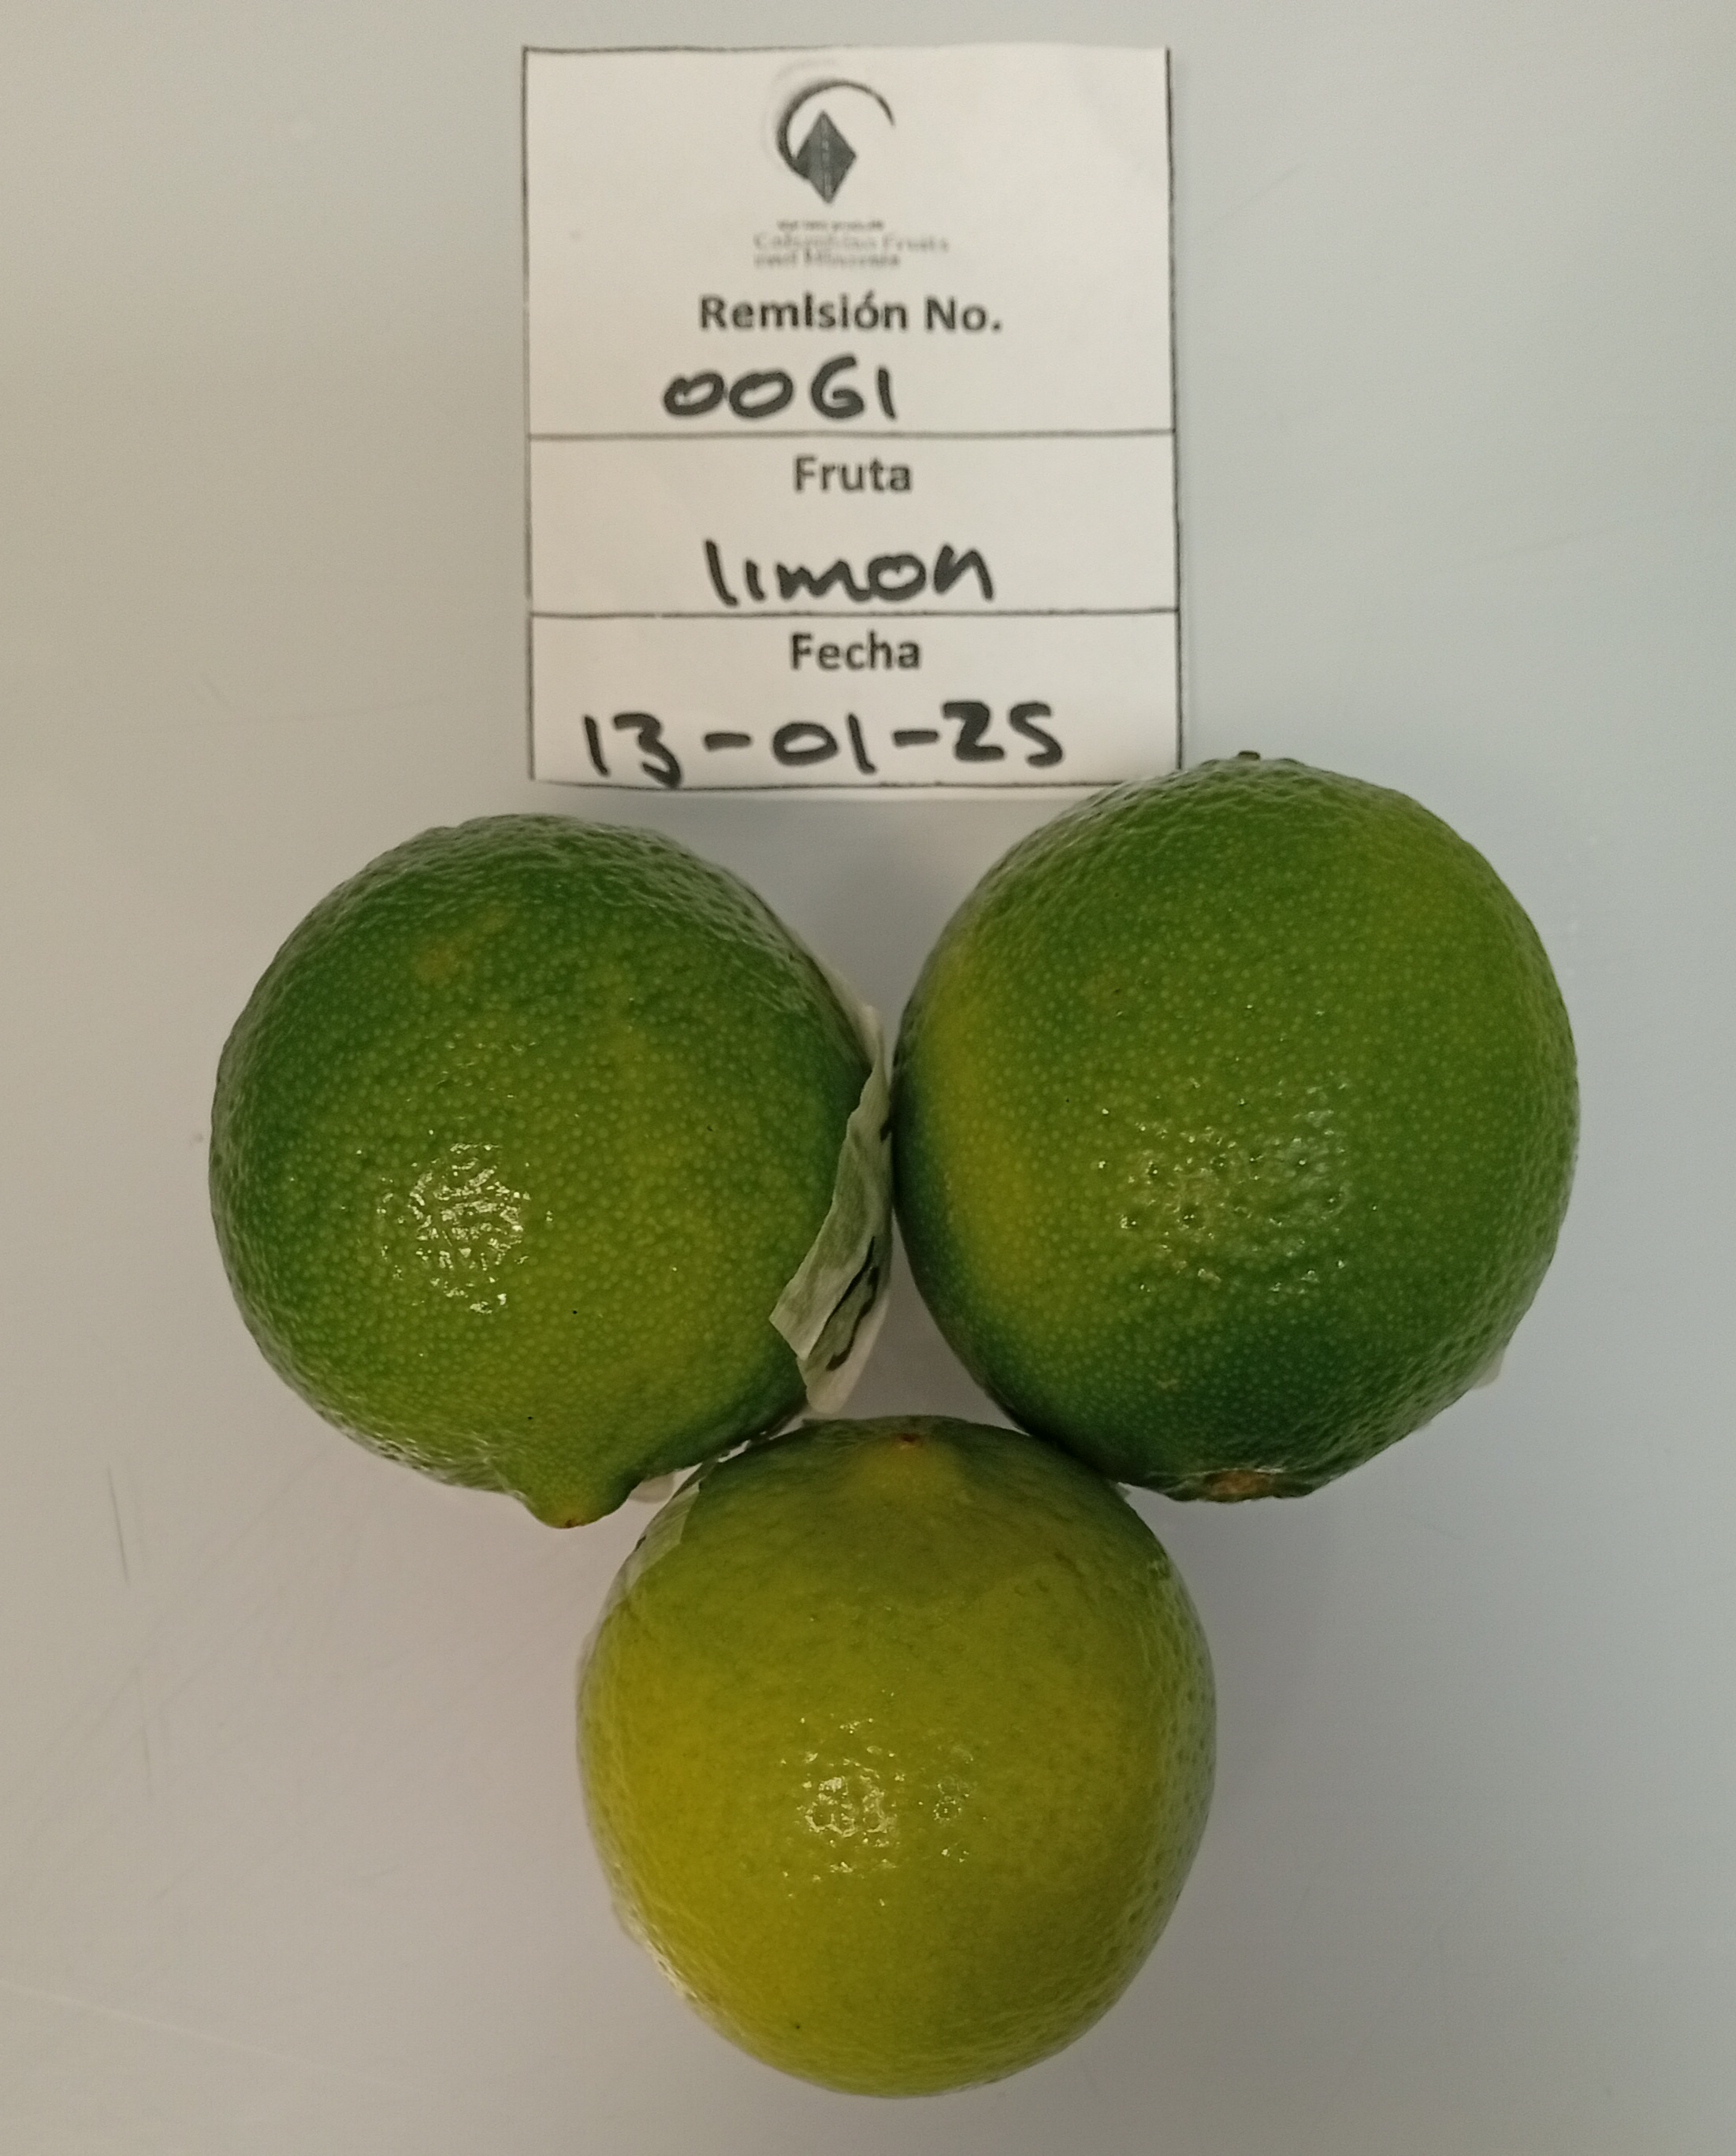 Colombian Fruits
Remisión No.
0061
Fruta
limon
Fecha
13-01-25